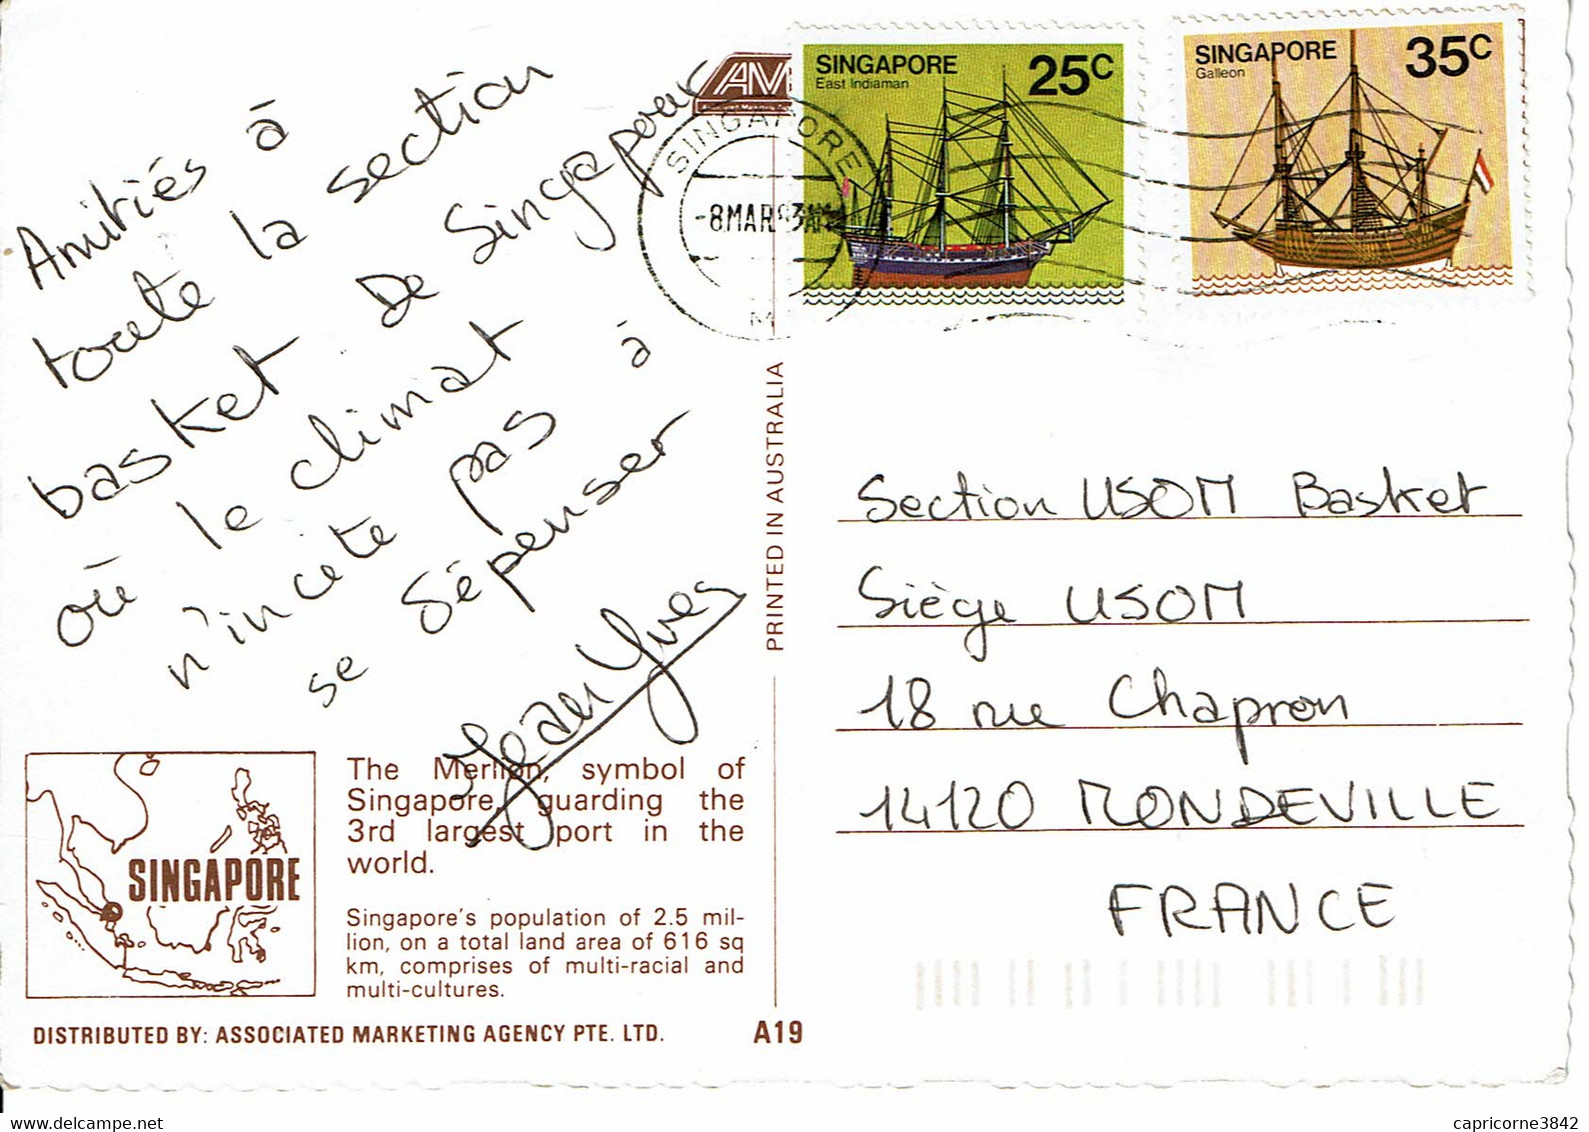 Amitiés à
toute la section
basket de Singapour
où le climat
n'incite pas à
se dépenser
Jean Yves
AM
SINGAPORE
East Indiaman
25C
SINGAPORE
Galleon
35C
SINGAPORE
-8MAR
PRINTED IN AUSTRALIA
Section USOM Basket
Siège USOM
18 rue Chapron
14120 MONDEVILLE
FRANCE
SINGAPORE
The Merlion, symbol of
Singapore, guarding the
3rd largest port in the
world.
Singapore's population of 2.5 mil-
lion, on a total land area of 616 sq
km, comprises of multi-racial and
multi-cultures.
DISTRIBUTED BY: ASSOCIATED MARKETING AGENCY PTE. LTD.
A19
www.delcampe.net
capricorne3842